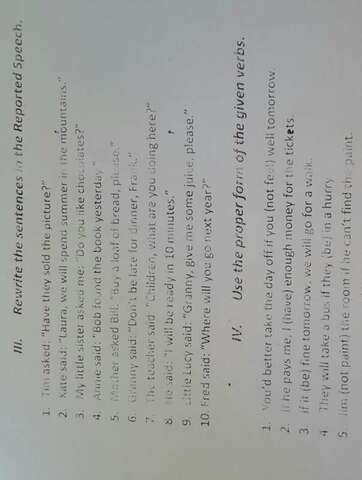 III. Rewrite the sentences in the Reported Speech.
1. Tim asked: "Have they sold the picture?"
2. Kate said: "Laura, we will spend summer in the mountains."
3. My little sister asked me: "Do you like chocolates?"
4. Annie said: "Bob found the book yesterday."
5. Mother asked Bill: "Buy a loaf of bread, please."
6. Granny said: "Don't be late for dinner, Frank."
7. The teacher said: "Children, what are you doing here?"
8. He said: "I will be ready in 10 minutes."
9. Little Lucy said: "Granny, give me some juice, please."
10. Fred said: "Where will you go next year?"
IV. Use the proper form of the given verbs.
1. You'd better take the day off if you (not feel) well tomorrow.
2. If he pays me, I (have) enough money for the tickets.
3. If it (be) fine tomorrow, we will go for a walk.
4. They will take a bus if they (be) in a hurry.
5. Jim (not paint) the room if he can't find the paint.